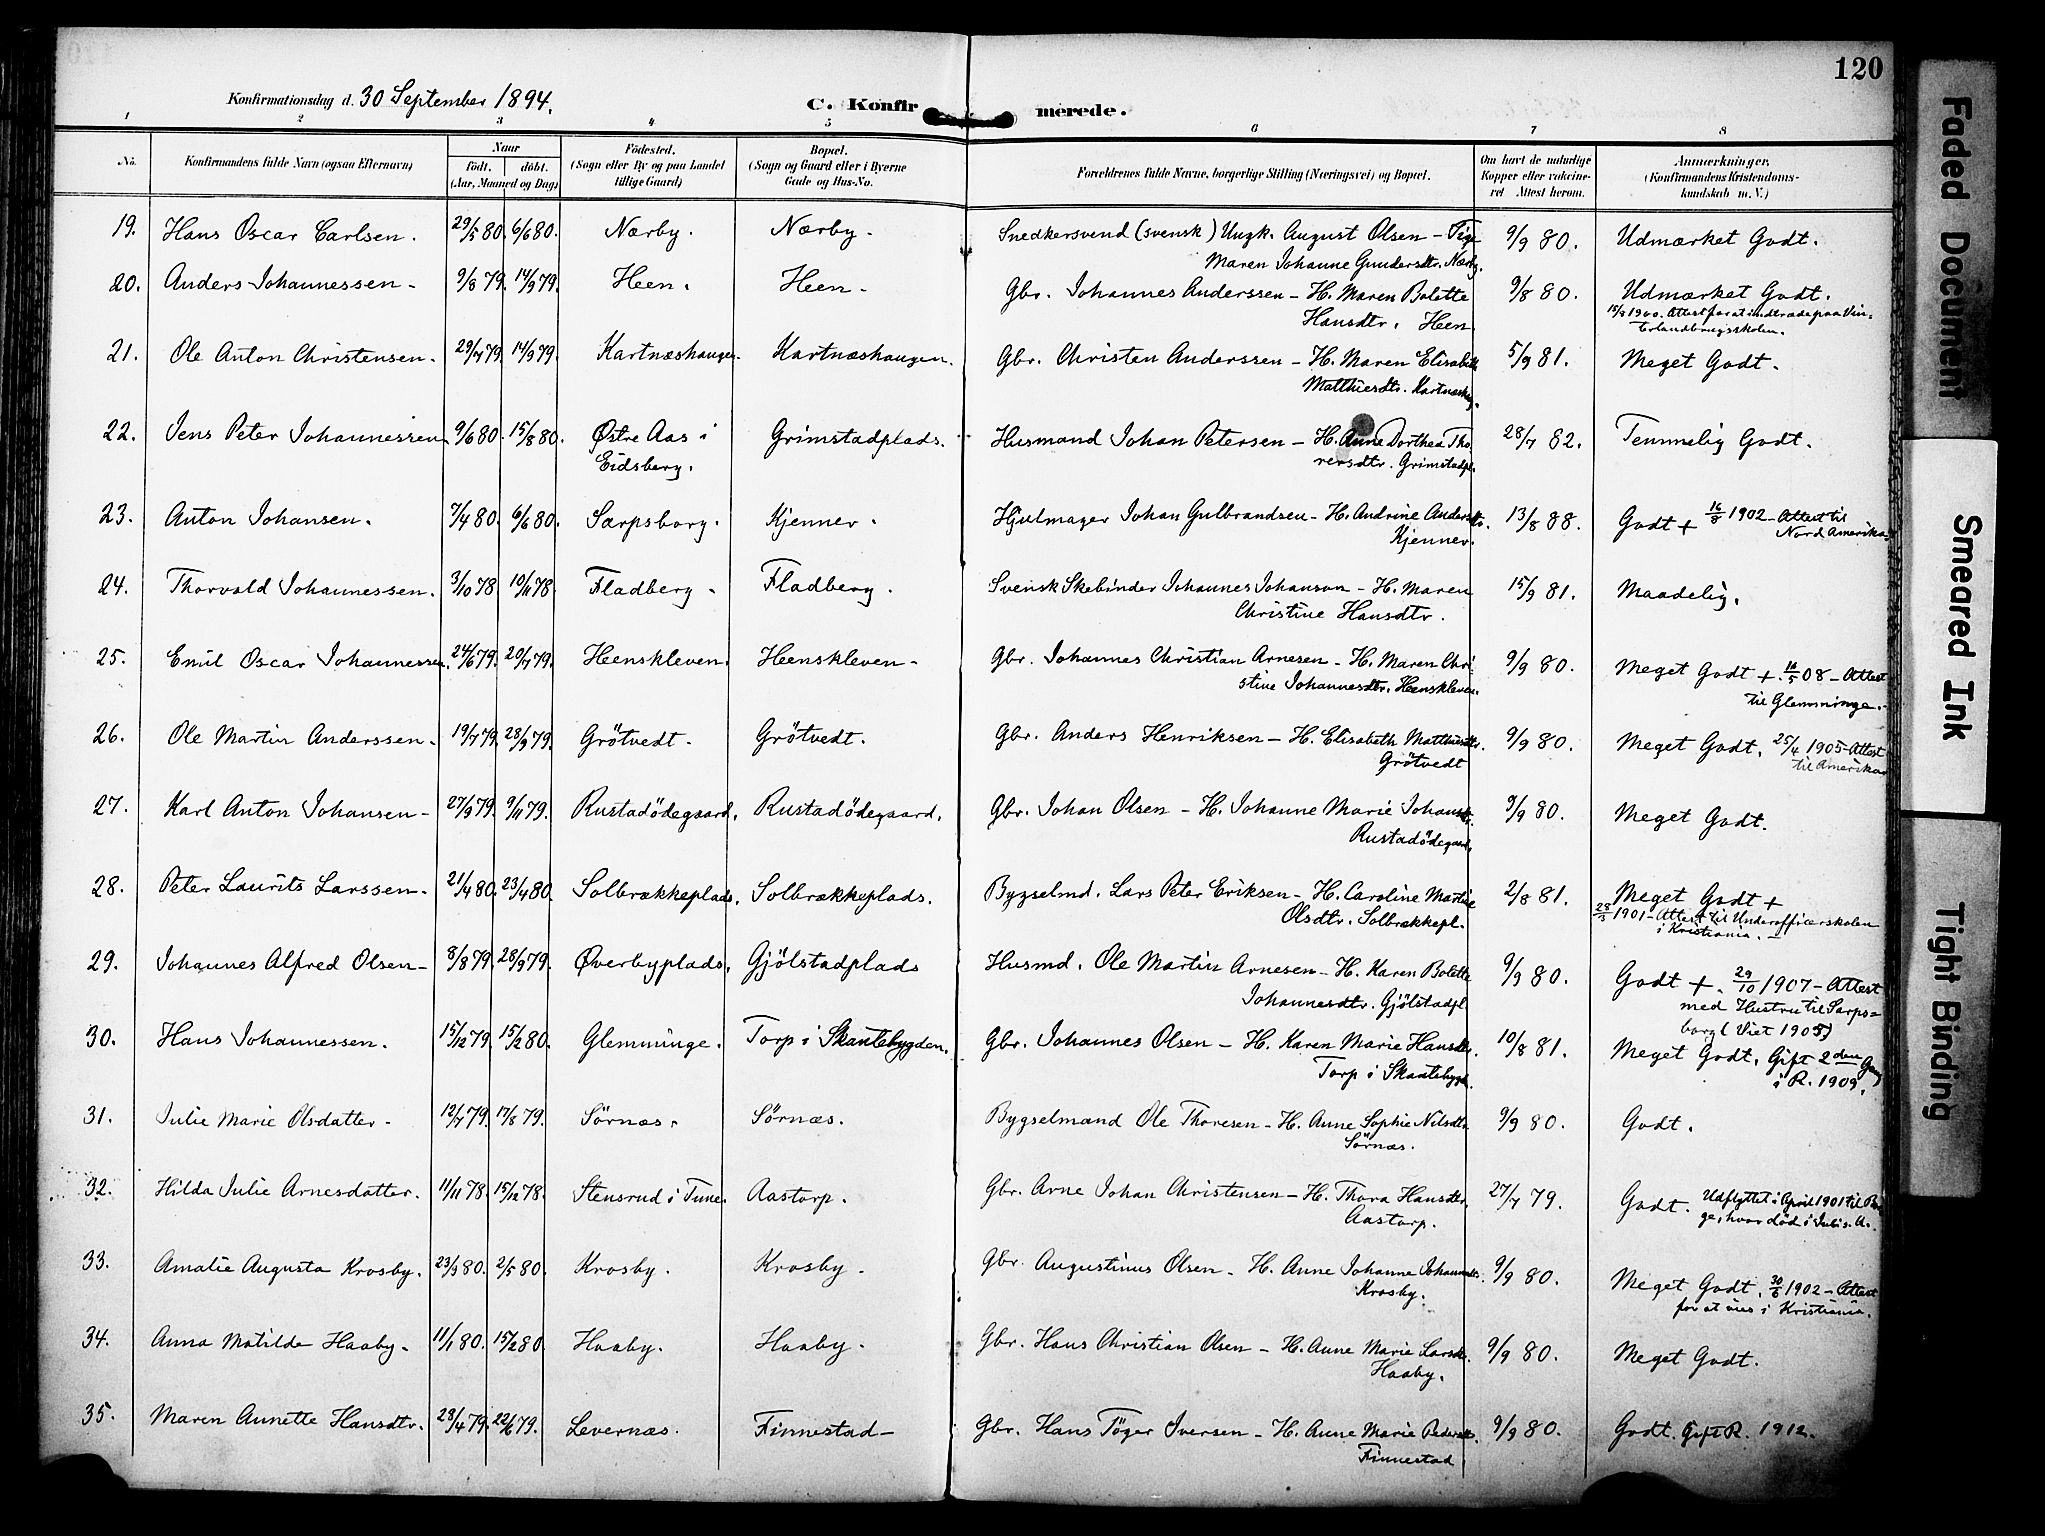 120
Konfirmationsdag d. 30 September 1894.
C. Konfirmerede.
1 2 3 4 5 6 7 8
No. Konfirmandens fulde Navn (ogsaa Efternavn) Naar født, døbt. (Aar, Maaned og Dag) Fødested. (Sogn eller By og paa Landet tillige Gaard) Bopæl. (Sogn og Gaard eller i Byerne Gade og Hus-No. Forældrenes fulde Navne, borgerlige Stilling (Næringsvei) og Bopæl. Om havt de naturlige Kopper eller vakcineret Attest herom. Anmærkninger, (Konfirmandens Kristendomskundskab m. V.)
19. Hans Oscar Carlsen. 29/5 80. 6/6 80. Nærby. Nærby. Snedkersvend (svensk) Ungk. August Olsen – Pige 9/9 80. Udmærket Godt.
Maren Johanne Gundersdtr. Nærby.
20. Anders Johannessen. 9/8 79. 14/9 79. Heen. Heen. Gbr. Johannes Anderssen – H. Maren Bolette 9/8 80. Udmærket Godt.
Hansdtr. Heen 15/9 1900. Attest for at indtræde paa Vin-
terlandbrugsskolen.
21. Ole Anton Christensen. 29/7 79. 14/9 79. Kartnæshaugen. Kartnæshaugen. Gbr. Christen Anderssen – H. Maren Elisabeth 5/9 81. Meget Godt.
Matthiesdtr. Kartnæshg.
22. Jens Peter Johannessen 9/6 80. 15/8 80. Østre Aas i Grimstadplads. Husmand Johan Petersen – H. Anne Dorthea Tho- 28/7 82. Temmelig Godt.
Eidsberg. rersdtr. Grimstadpl.
23. Anton Johansen. 7/4 80. 6/6 80. Sarpsborg. Kjenner. Hjulmager Johan Gulbrandsen – H. Andrine Andersdtr. 13/8 88. Godt + 16/8 1902 – Attest til
Kjenner. Nord Amerika
24. Thorvald Johannessen. 3/10 78. 10/11 78. Fladberg. Fladberg. Svensk Skebinder Johannes Johanson – H. Maren 15/9 81. Maadelig.
Christine Hansdtr.
25. Emil Oscar Johannessen. 24/6 79. 20/7 79. Heenskleven. Heenskleven. Gbr. Johannes Christian Arnesen – H. Maren Chri- 9/9 80. Meget Godt +. 16/5 08 – Attest
stine Johannesdtr. Heenskleven. til Glemminge.
26. Ole Martin Anderssen. 19/7 79. 28/9 79. Grötvedt. Grötvedt. Gbr. Anders Henriksen – H. Elisabeth Matthisdtr. 9/9 80. Meget Godt. 25/4 1905 – Attest
Grötvedt til Amerika
27. Karl Anton Johansen – 27/9 79. 9/11 79. Rustadödegaard. Rustadödegaard. Gbr. Johan Olsen – H. Johanne Marie Johansdtr. 9/9 80. Meget Godt.
Rustadödegaard.
28. Peter Laurits Larssen. 21/4 80. 23/4 80. Solbrækkeplads. Solbrækkeplads. Bygselmd. Lars Peter Eriksen – H. Caroline Martine 2/8 81. Meget Godt +
Olsdtr. Solbrækkepl. 28/3 1901 – Attest til Underofficerskolen
i Kristiania. –
29. Johannes Alfred Olsen – 8/8 79. 28/9 79. Øverbyplads. Gjölstadplads Husmd. Ole Martin Arnesen – H. Karen Bolette 9/9 80. Godt +. 29/10 1907 – Attest
Johannesdtr. Gjölstadpl. med Hustru til Sarps-
borg (Viet 1905)
30. Hans Johannessen. 15/12 79. 15/2 80. Glemminge. Torp i Skantebygden. Gbr. Johannes Olsen – H. Karen Marie Hansdtr. 10/8 81. Meget Godt. Gift 2den Gang
Torp i Skantebygd. i R. 1909.
31. Julie Marie Olsdatter – 12/7 79. 17/8 79. Sörnæs. Sörnæs. Bygselmand Ole Thoresen – H. Anne Sophie Nilsdtr. 9/9 80. Godt.
Sörnæs.
32. Hilda Julie Arnesdatter. 11/11 78. 15/12 78. Stensrud i Tune. Aastorp. Gbr. Arne Johan Christensen – H. Thora Hansdtr. 27/7 79. Godt. Udflyttet i April 1901 til
Aastorp. hvor död i Juli s. A.
33. Amalie Augusta Krosby. 23/3 80. 2/5 80. Krosby. Krosby. Gbr. Augustinus Olsen – H. Anne Johanne Johannesdtr. 9/9 80. Meget Godt. 30/6 1902 – Attest
Krosby. for at vies i Kristiania.
34. Anna Matilde Haaby. 11/1 80. 15/2 80. Haaby. Haaby. Gbr. Hans Christian Olsen – H. Anne Marie Larsdtr. 9/9 80. Meget Godt.
Haaby.
35. Maren Annette Hansdtr. 28/4 79. 22/6 79. Levernæs. Finnestad – Gbr. Hans Töger Iversen – H. Anne Marie Pedersdtr. 9/9 80. Godt. Gift R. 1912.
Finnestad
Faded Document
Smeared Ink
Tight Binding